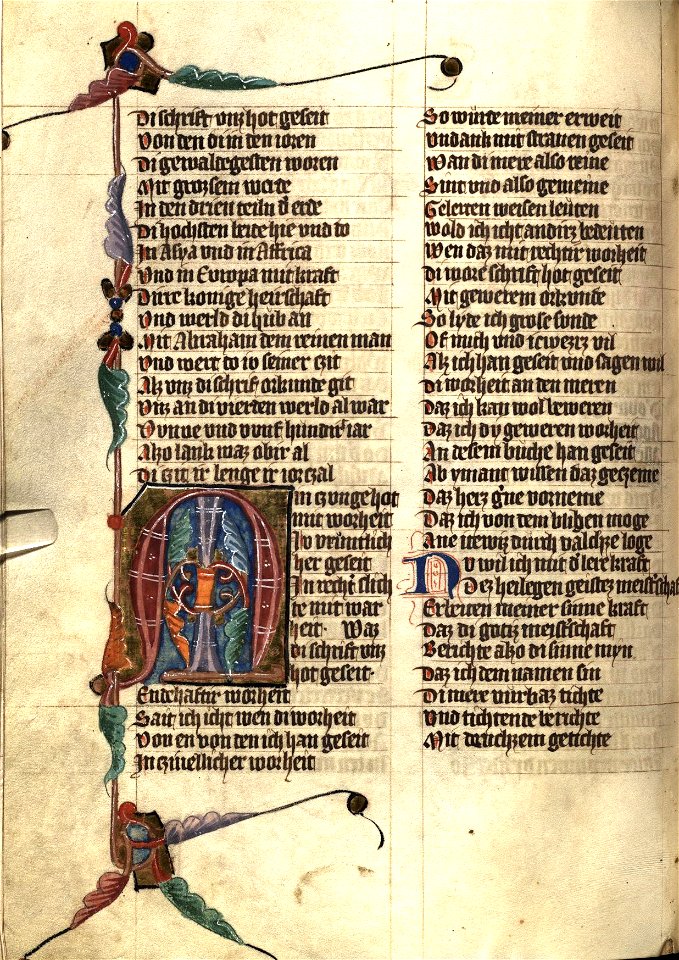 Di schrift vnz hot geseit
Von den di in den ioren
Di gewaldegesten woren
Mit grozsem werde
In den drien teiln d' erde
Di hochsten beide hie vnd do
In Asya vnd in Affrica
Vnd in Europa mit kraft
Dirre konige herschaft
Vnd werld di hub an
Mit Abraham dem reinen man
Vnd wert do io seiner czit
Alz vnz di schrift orkunde git
Vnz an di vierden werld al war
Vvnue vnd vunf hundirt iar
Alzo lank waz obir al
Di czit ir lenge ir iorczal
Min czunge hot
mit worheit
Iv vruntlich
her geseit
In recht' slich
te mit war
heit. Waz
di schrift vnz
hot geseit.
Endehaftir worheit
Sait ich icht wen di worheit
Von en von den ich han geseit
In czwellicher worheit
So wurde meiner erweit
vndank mit strauen geseit
Wan di mere also reine
Sint vnd also gemeine
Gelerten weisen leuten
Wold ich icht andirz bedeuten
Wen daz mit rechtir worheit
di wore schrift hot geseit
Mit gewerem orkunde
So lyde ich grose sunde
Of mich vnd itewezz vil
Alz ich han geseit vnd sagen wil
di worheit an den meren
Daz ich kan wol beweren
Daz ich dy geweren worheit
An desem buche han geseit
Ab ymant wissen daz geczeme
Daz herz g'ne vorneme
Daz ich von dem buben moge
Ane itewiz durch valsche loge
Nv wil ich mit d' lere kraft
Dez heilegen geistez meist'schaft
Erleiten meiner sinne kraft
Daz di gotiz meist'schaft
Berichte alzo di sinne myn
Daz ich dem namen sin
Di mere vurbaz tichte
vnd tichtende berichte
Mit deuchzem getichte